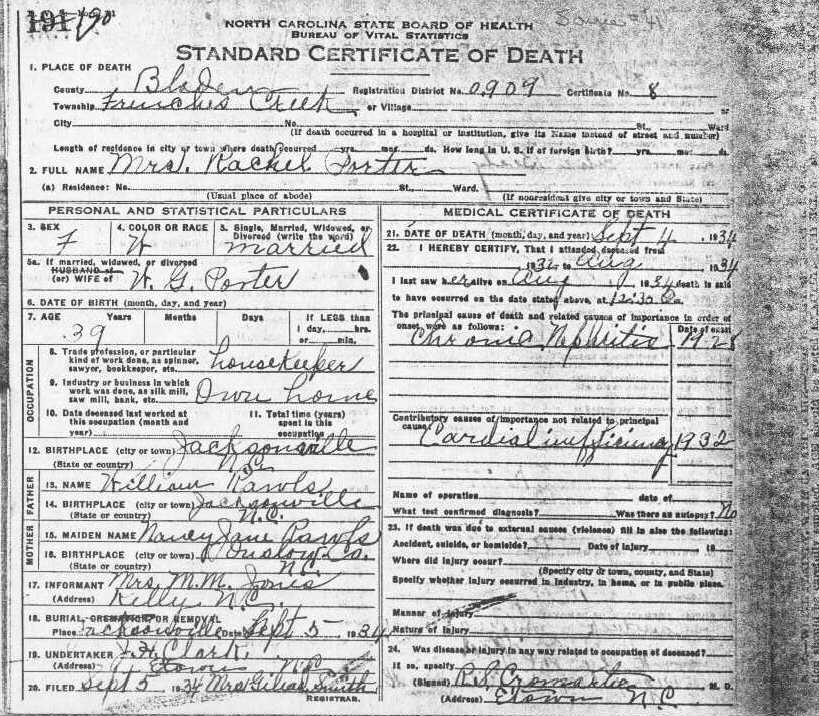 191 190
NORTH CAROLINA STATE BOARD OF HEALTH
BUREAU OF VITAL STATISTICS
STANDARD CERTIFICATE OF DEATH
1. PLACE OF DEATH
County Bladen Registration District No. 0909 Certificate No. 8
Township Frenches Creek or Village or
City No. St., Ward
(If death occurred in a hospital or institution, give its Name instead of street and number)
Length of residence in city or town where death occurred yrs. mos. ds. How long in U. S. if of foreign birth? yrs. mos. ds.
2. FULL NAME Mrs. Rachel Porter
(a) Residence: No. St., Ward.
(Usual place of abode) (If nonresident give city or town and State)
PERSONAL AND STATISTICAL PARTICULARS
3. SEX 4. COLOR OR RACE 5. Single, Married, Widowed, or Divorced (write the word)
F W married
5a. If married, widowed, or divorced
HUSBAND of
(or) WIFE of W. G. Porter
6. DATE OF BIRTH (month, day, and year)
7. AGE Years Months Days If LESS than
39 1 day, hrs.
or min.
OCCUPATION
8. Trade profession, or particular
kind of work done, as spinner,
sawyer, bookkeeper, etc. housekeeper
9. Industry or business in which
work was done, as silk mill,
saw mill, bank, etc. Own home
10. Date deceased last worked at 11. Total time (years)
this occupation (month and spent in this
year) occupation
12. BIRTHPLACE (city or town) Jacksonville
(State or country) N.C.
FATHER
13. NAME William Rawls
14. BIRTHPLACE (city or town) Jacksonville
(State or country) N.C.
MOTHER
15. MAIDEN NAME Nancy Jane Rawls
16. BIRTHPLACE (city or town) Onslow Co.
(State or country) N.C.
17. INFORMANT Mrs. M. M. Jones
(Address) Kelly N.C.
18. BURIAL, CREMATION OR REMOVAL
Place Jacksonville Date Sept 5 1934
19. UNDERTAKER J. H. Clark
(Address) Etown N.C.
20. FILED Sept 5 1934 Mrs Smith
REGISTRAR.
MEDICAL CERTIFICATE OF DEATH
21. DATE OF DEATH (month, day, and year) Sept 4 1934
22. I HEREBY CERTIFY, That I attended deceased from
to Aug 1934
I last saw her alive on Aug 1934 death is said
to have occurred on the date stated above, at 12:30 a.
The principal cause of death and related causes of importance in order of
onset were as follows: Date of onset
Chronic Nephritis 1928
Contributory causes of importance not related to principal
cause:
Cardial 1932
Name of operation date of
What test confirmed diagnosis? Was there an autopsy? No
23. If death was due to external causes (violence) fill in also the following:
Accident, suicide, or homicide? Date of injury 19
Where did injury occur?
(Specify city or town, county, and State)
Specify whether injury occurred in industry, in home, or in public place.
Manner of injury
Nature of injury
24. Was disease or injury in any way related to occupation of deceased?
If so, specify
(Signed) R. S. Cromartie M. D.
(Address) Etown N.C.